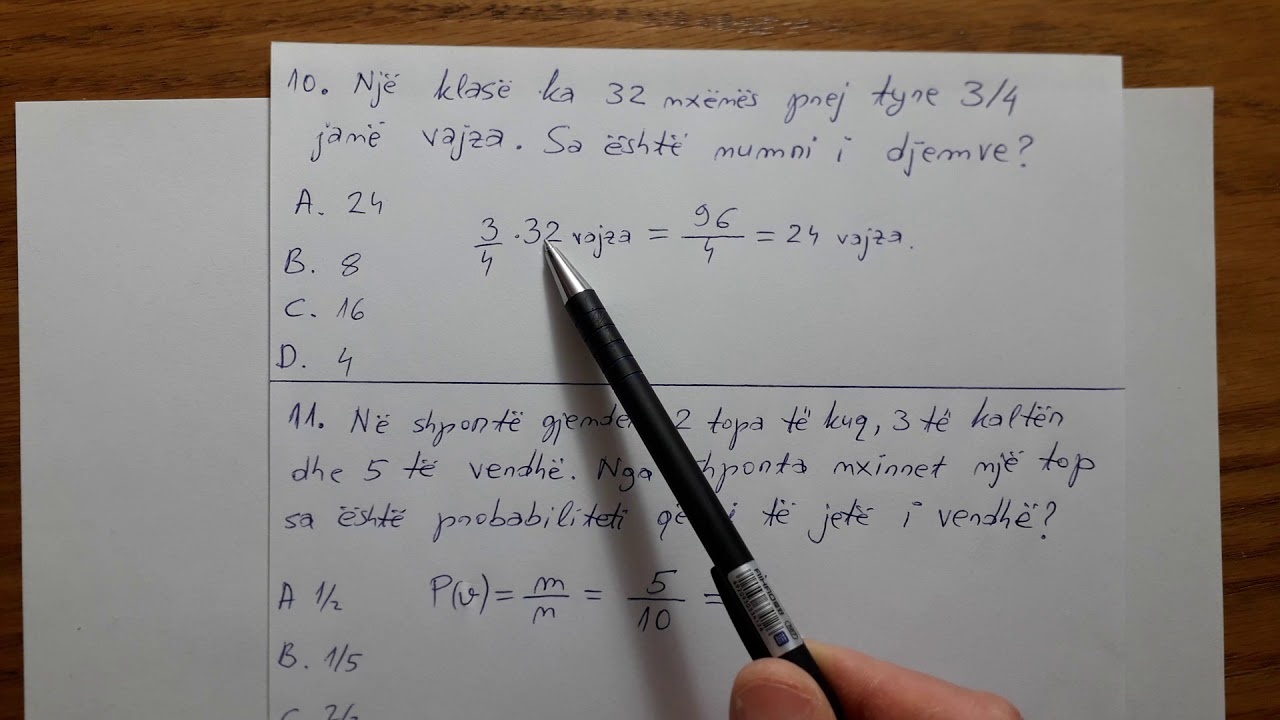 10. Një klasë ka 32 nxënës prej tyre 3/4
janë vajza. Sa është numri i djemve?
A. 24
B. 8
C. 16
D. 4
3/4 · 32 vajza = 96/4 = 24 vajza.
11. Në shportë gjenden 2 topa të kuq, 3 të kaltër
dhe 5 të verdhë. Nga shporta nxirret një top
sa është probabiliteti që i të jetë i verdhë?
A 1/2
B. 1/5
P(v) = m/n = 5/10 =